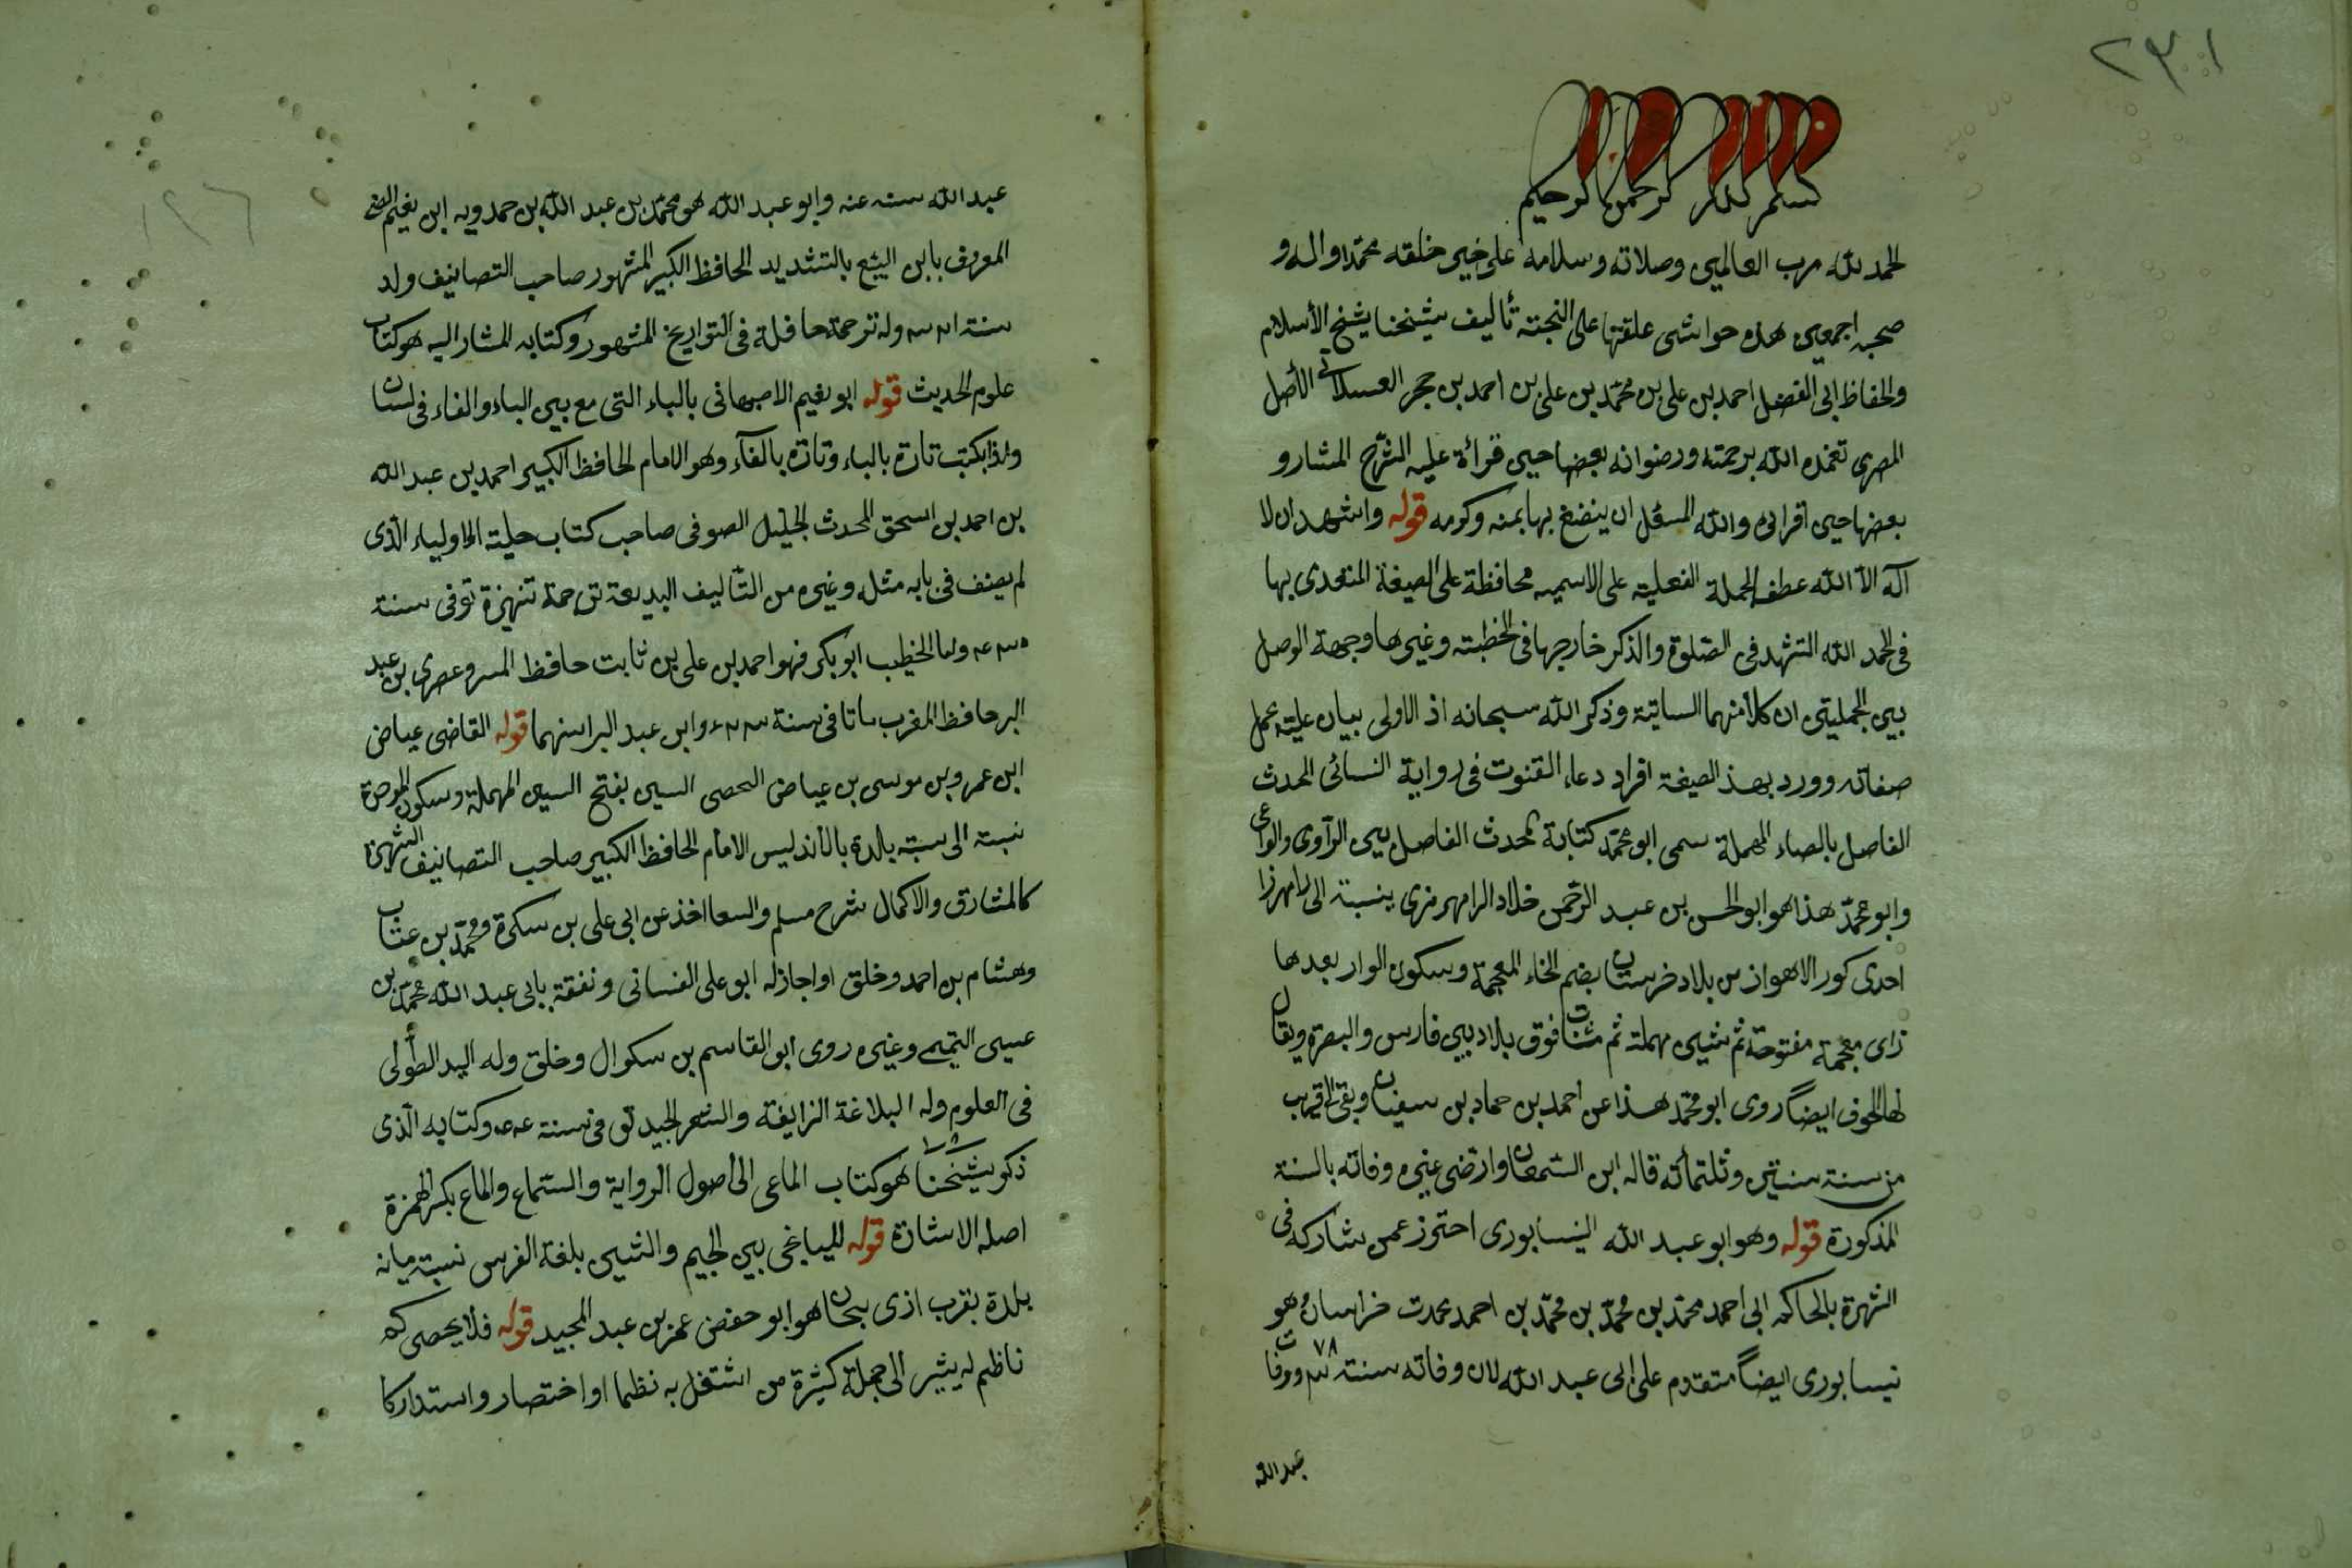 ٢٣٠١
بسم الله الرحمن الرحيم
الحمد لله رب العالمين وصلاته وسلامه على خير خلقه محمد واله و
صحبه اجمعين هذه حواشى علقتها على النخبة تأليف شيخنا شيخ الأسلام
والحفاظ ابى الفضل احمد بن على بن محمد بن على بن احمد بن حجر العسقلانى الأصل
المصرى تغمده الله برحمته ورضوانه بعضها حين قرائة عليه الشرح المشار و
بعضها حين اقرائى والله المسؤل ان ينفع بها بمنه وكرمه قوله واشهد ان لا
آله الا الله عطف الجملة الفعلية على الاسميه محافظة على الصيغة المتعدى بها
فى الحمد الله التشهد فى الصلوة والذكر خارجها فى الخطبته وغيرها وجهة الوصل
بين الجملتين ان كلا منهما الساتية وذكر الله سبحانه اذ الاولى بيان علية عمل
صفاته وورد بهذ الصيغة افراد دعاء القنوت فى رواية النسائى المحدث
الفاصل بالصاء المهملة سمى ابو محمد كتابة المحدث الفاصل بين الرآوى والواعى
وابو محمد هذا هو ابو الحسن بن عبد الرحمن خلاد الرامهرمزى ينسبة الى رامهرزا
احدى كور الاهواز من بلاد خرستان بضم الخاء المعجمة وسكون الوار بعدها
زاى معجمة مفتوحة ثم شين مهملة ثم مثنات فوق بلاد بين فارس والبصرة ويقال
لها الخوف ايضاً روى ابو محمد هذا عن احمد بن حماد بن سفيان وبقى الى قريب
من سنة سنتين وثلتمأته قاله ابن السمعان وارتضى غيره وفاته بالسنة
المذكورة قوله وهو ابو عبد الله النيسابورى احترز عمن شاركه فى
الشهرة بالحاكم ابى احمد محمد بن محمد بن محمد بن احمد محدث خراسان وهو
نيسابورى ايضاً متقدم على ابى عبد الله لان وفاته سنة ٣٧٨ ووفات
عبد الله
عبد الله سنه عنه وابو عبد الله هو محمد بن عبد الله بن حمدويه ابن نعيم الضى
المعروف بابن البيع بالتشديد الحافظ الكبير المشهور صاحب التصانيف ولد
سنة ٣٢١ وله ترجمة حافلة فى التواريخ المشهور وكتابه المشار اليه هو كتاب
علوم الحديث قوله ابو نعيم الاصبهانى بالباء التى مع بين الباء والفاء فى لسان
ولذا يكتب تارة بالباء وتارة بالفآء وهو الامام الحافظ الكبير احمد بن عبد الله
بن احمد بن اسحق المحدث الجليل الصوفى صاحب كتاب حيلة الاولياء الذى
لم يصنف فى بابه مثله وغيره من التآليف البديعة ترجمة تنهزة توفى سنة
٤٣٠ واما الخطيب ابو بكر فهو احمد بن على بن ثابت حافظ المسر وعصرى بن عبد
البر حافظ المغرب ماتا فى سنة ٤٦٣ وابن عبد البر اسنهما قوله القاضى عياض
ابن عمرو بن موسى بن عياض الحصى السبى بفتح السين المهملة وسكون الموحدة
نسبة الى سبته بالدة بالأندلس الامام الحافظ الكبير صاحب التصانيف الشهيرة
كالمشارق والاكمال شرح مسلم والسعا اخذ عن ابى على بن سكرة ومحمد بن عتاب
وهشام بن احمد وخلق او اجازله ابو على الغسانى ونفقة بابى عبد الله محمد بن
عيسى التميمى وغيره روى ابو القاسم بن سكوال وخلق وله اليد الطولى
فى العلوم وله البلاغة الزايفة والشعر الجيد توفى سنة ٥٤٤ وكتابه الذى
ذكر شيخنا هو كتاب الماعى الى أصول الرواية والسماع والماع بكسر الهمزة
اصله الاشارة قوله للمياغجى بين الجيم والشين بلغة الفرس نسبة ميانه
بلدة بقرب اذى بيجان هو ابو حفص عمر بن عبد المجيد قوله فلا يحصى كم
ناظم له يشير الى جملة كثيرة من اشتغل به نظما او اختصار واستدراكا